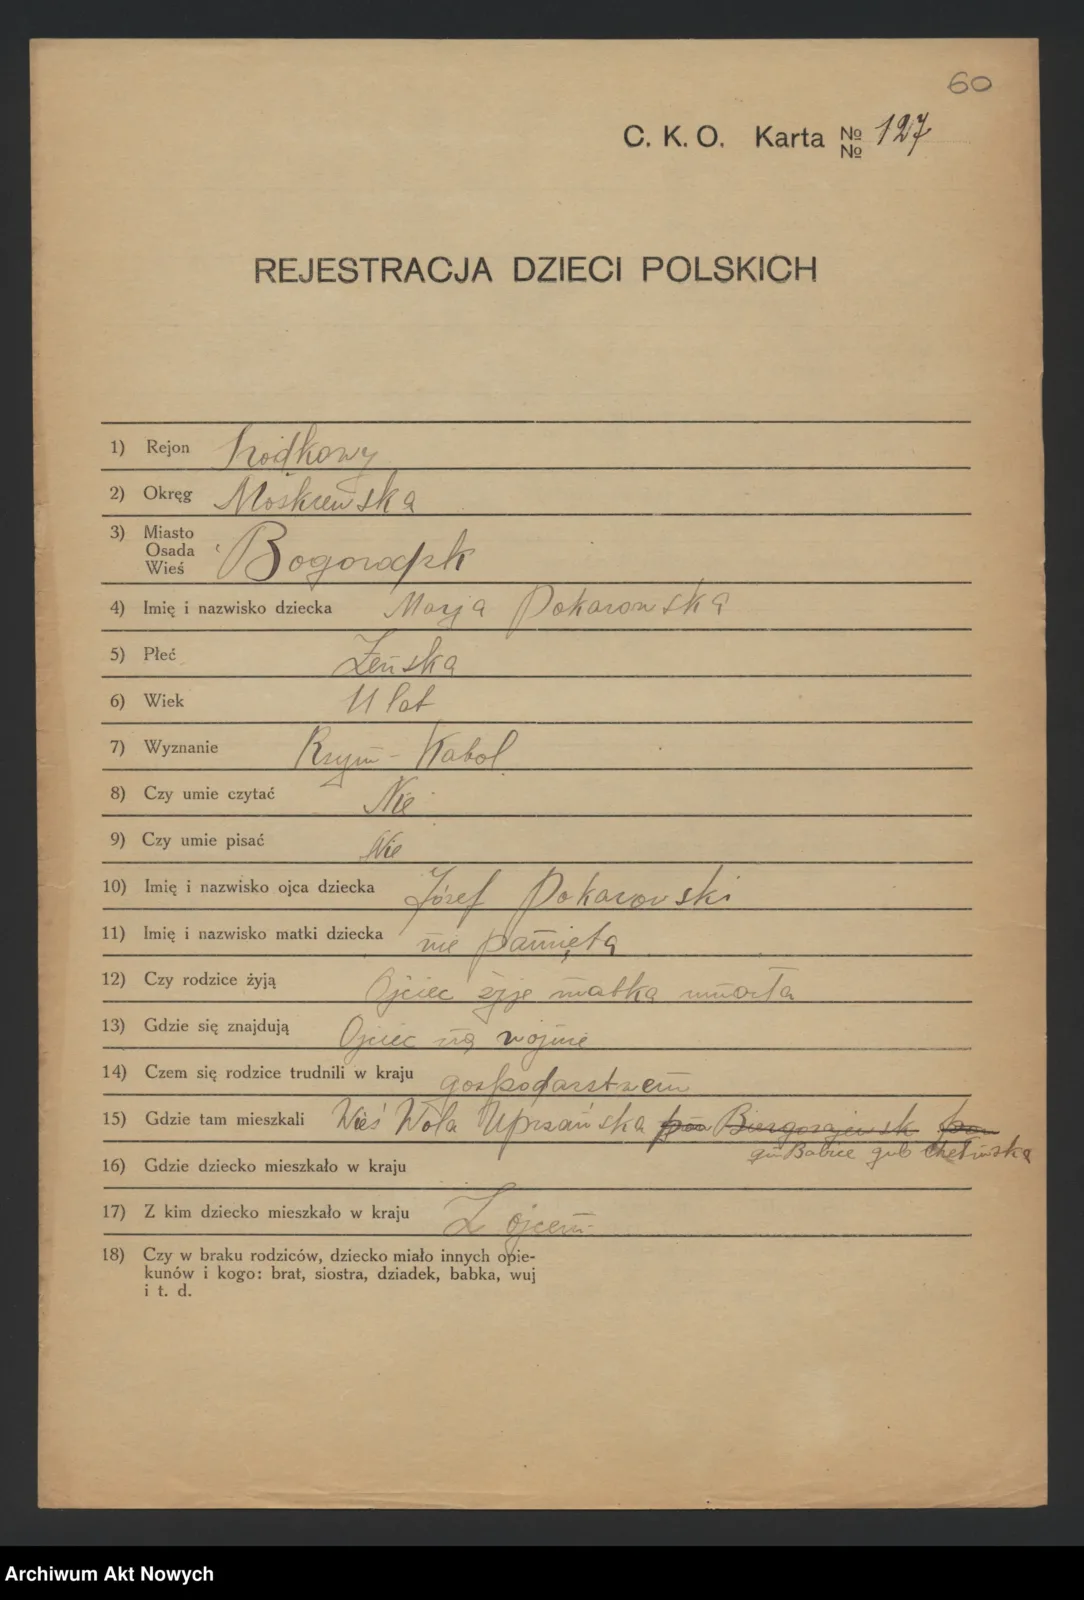 60
C. K. O. Karta № 127
№
REJESTRACJA DZIECI POLSKICH
1) Rejon Środkowy
2) Okręg Moskiewska
3) Miasto
Osada
Wieś
Bogorodsk
4) Imię i nazwisko dziecka Marja Pokarowska
5) Płeć Żeńska
6) Wiek 11 lat
7) Wyznanie Rzym - Katol
8) Czy umie czytać Nie
9) Czy umie pisać Nie
10) Imię i nazwisko ojca dziecka Józef Pokarowski
11) Imię i nazwisko matki dziecka nie pamięta
12) Czy rodzice żyją Ojciec żyje matka umarła
13) Gdzie się znajdują Ojciec na wojnie
14) Czem się rodzice trudnili w kraju gospodarstwem
15) Gdzie tam mieszkali Wieś Wola
gm Babice gub Chełmska
16) Gdzie dziecko mieszkało w kraju
17) Z kim dziecko mieszkało w kraju Z ojcem
18) Czy w braku rodziców, dziecko miało innych opie-
kunów i kogo: brat, siostra, dziadek, babka, wuj
i t. d.
Archiwum Akt Nowych